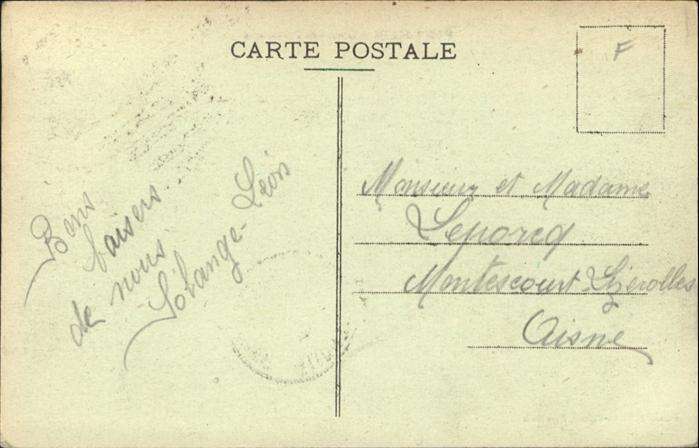 CARTE POSTALE
F
Bons
baisers
de nous.
Solange - Léon
Monsieur et Madame
Leporcq
Montescourt-Lizerolles
Aisne